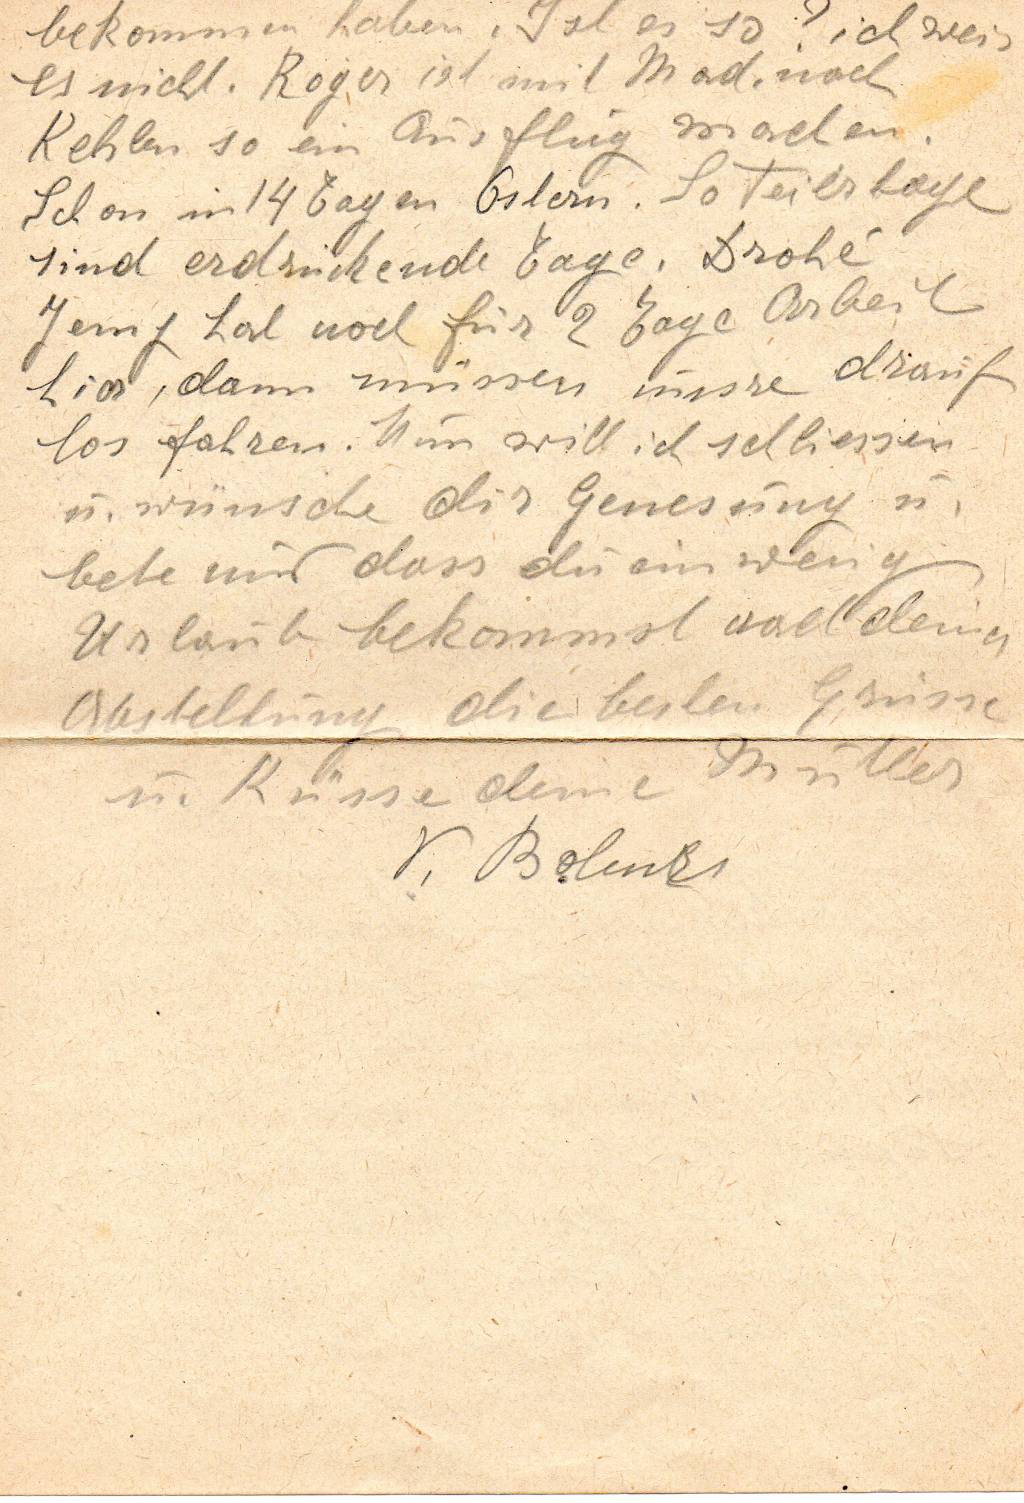 bekommen haben. Ist es so? ich weis
es nicht. Roger ist mit Mad. nach
Kehlen so ein Ausflug machen.
Schon in 14 Tagen Ostern. So Feiertage
sind erdrückende Tage.
Jemy hat noch für 2 Tage Arbeit
hier, dann müssen unsre drauf
los fahren. Nun will ich schliessen
u. wünsche dir Genesung u.
bete nur dass du ein wenig
Urlaub bekommst nach deiner
Abstellung die besten Grüsse
u. Küsse deine Mutter
V.